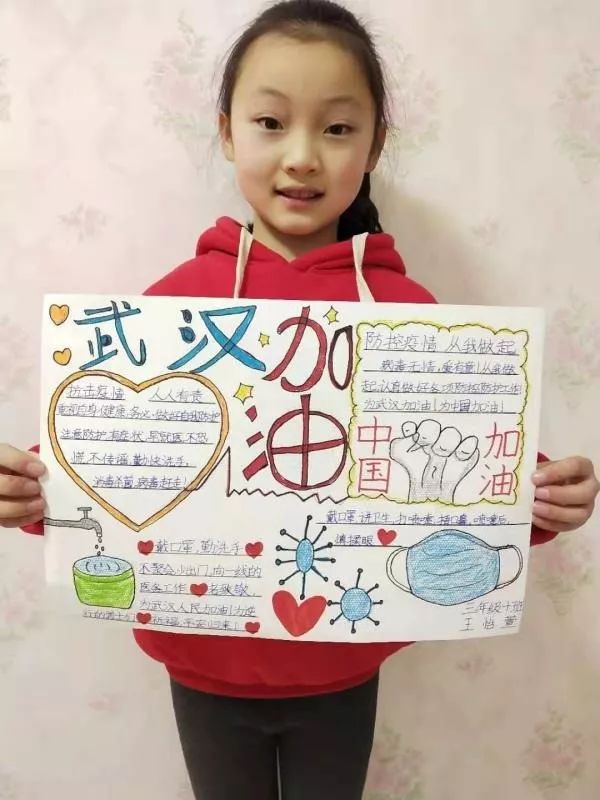 武汉加油
抗击疫情 人人有责
注意防护,有症状,早就医,不恐
慌,不传播,勤快洗手,
消毒杀菌,病毒赶走!
防控疫情 从我做起
病毒无情,爱有意!从我做
起,认真做好各项防控防护工作
为武汉加油!为中国加油!
中国加油
戴口罩,讲卫生,打喷嚏,捂口鼻,喷嚏后,
慎揉眼
戴口罩,勤洗手
不聚会,少出门,向一线的
医务工作者致敬,
为武汉人民加油!为逆
行的勇士们祈福,平安归来!
三年级十班
王怡萱